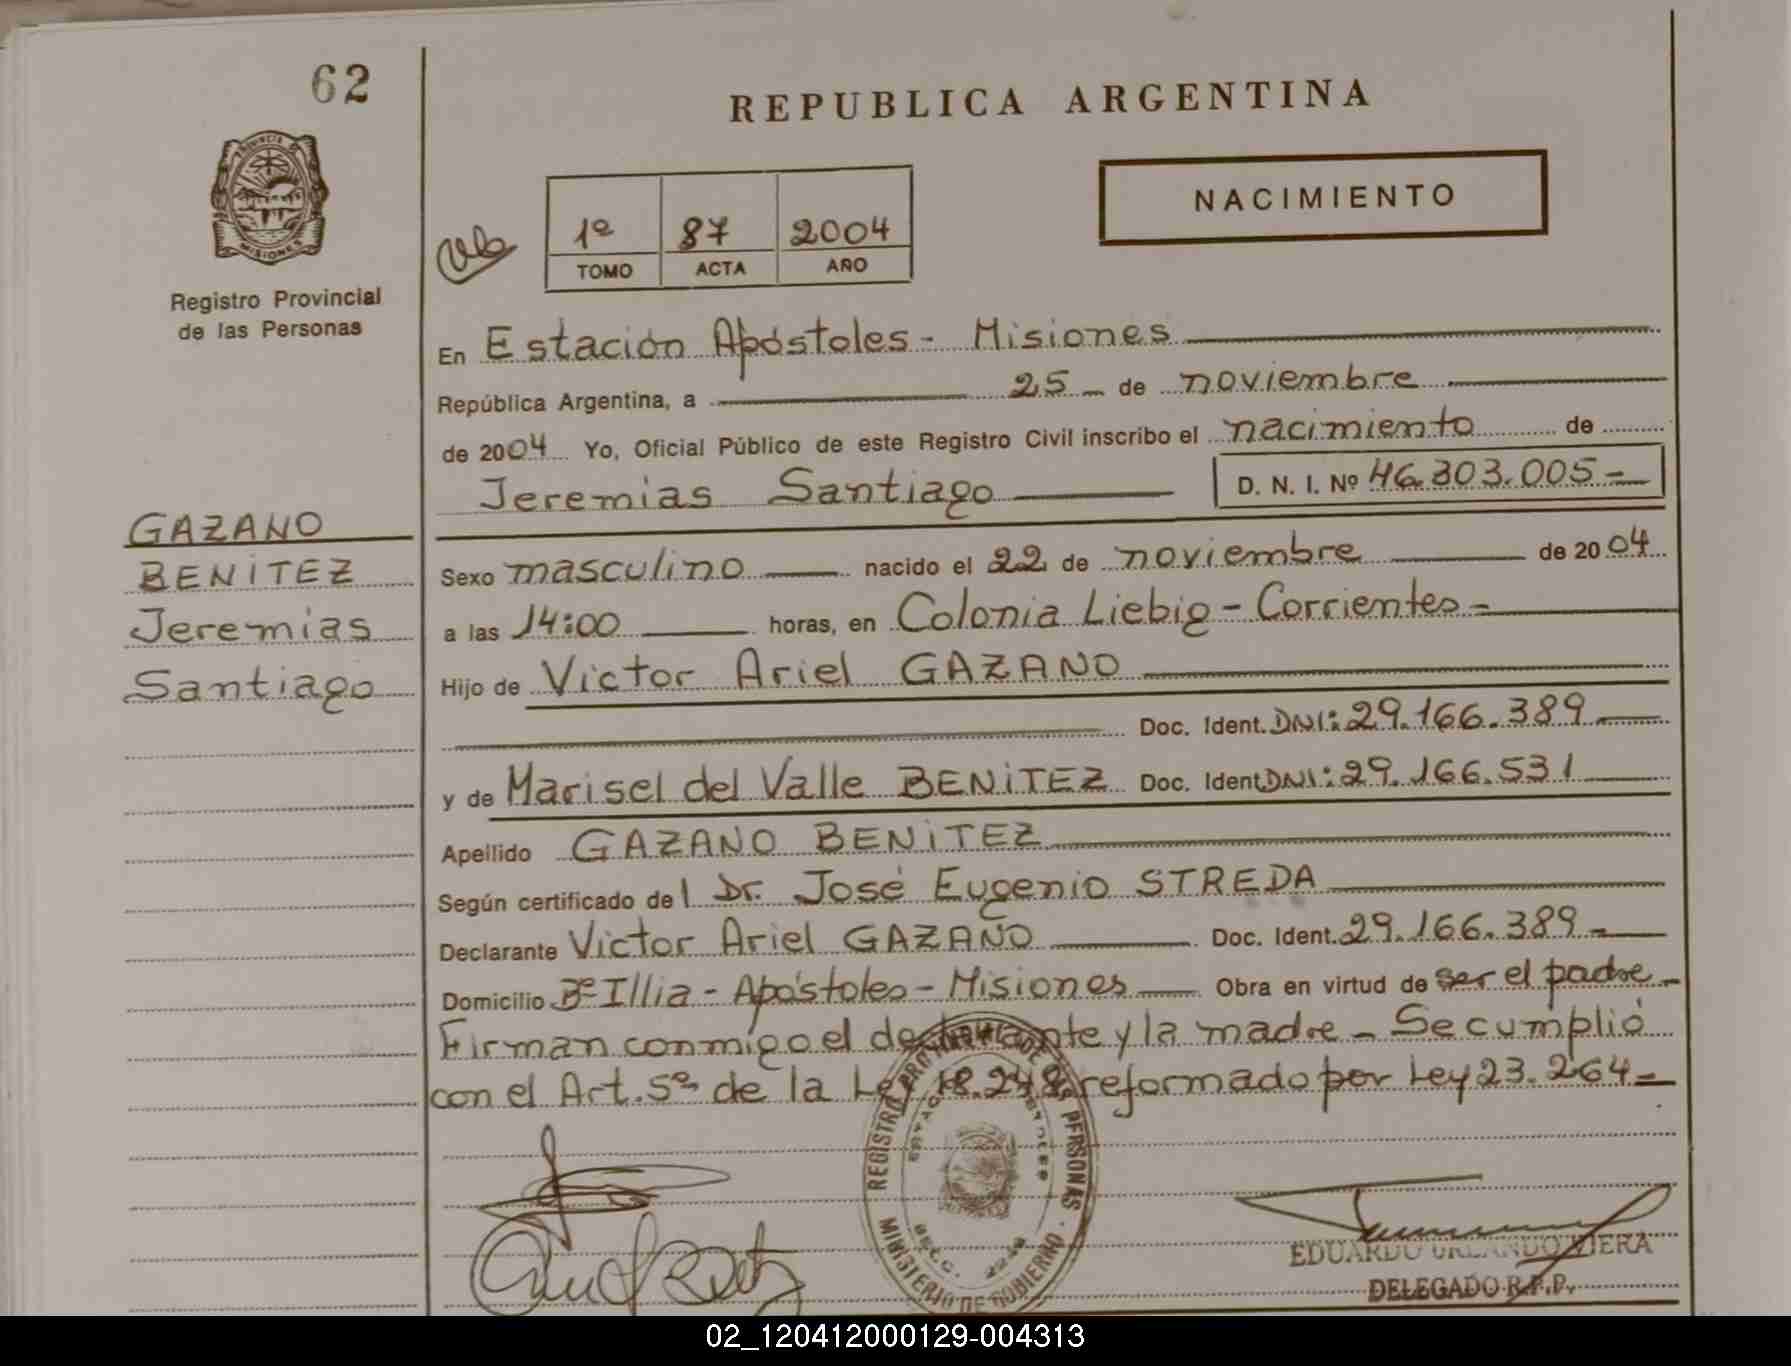 62
REPUBLICA ARGENTINA
NACIMIENTO
PROVINCIA DE
MISIONES
Registro Provincial
de las Personas
1º 87 2004
TOMO ACTA AÑO
En Estación Apóstoles - Misiones
República Argentina, a 25 de noviembre
de 2004 Yo, Oficial Público de este Registro Civil inscribo el nacimiento de
Jeremias Santiago D. N. I. Nº 46.303.005=
GAZANO
BENITEZ
Jeremias
Santiago
Sexo masculino nacido el 22 de noviembre de 2004
a las 14:00 horas, en Colonia Liebig - Corrientes -
Hijo de Victor Ariel GAZANO
Doc. Ident. DNI: 29.166.389
y de Marisel del Valle BENITEZ Doc. Ident DNI: 29.166.531
Apellido GAZANO BENITEZ
Según certificado de l Dr. José Eugenio STREDA
Declarante Victor Ariel GAZANO Doc. Ident. 29.166.389
Domicilio Bº Illia - Apóstoles - Misiones Obra en virtud de ser el padre -
Firman conmigo el declarante y la madre - Se cumplió
con el Art. 5º de la Ley 18.248 reformado por Ley 23.264 -
REGISTRO PROVINCIAL DE LAS PERSONAS
MINISTERIO DE GOBIERNO
EDUARDO ORLANDO VIERA
DELEGADO R.P.P.
02_120412000129-004313